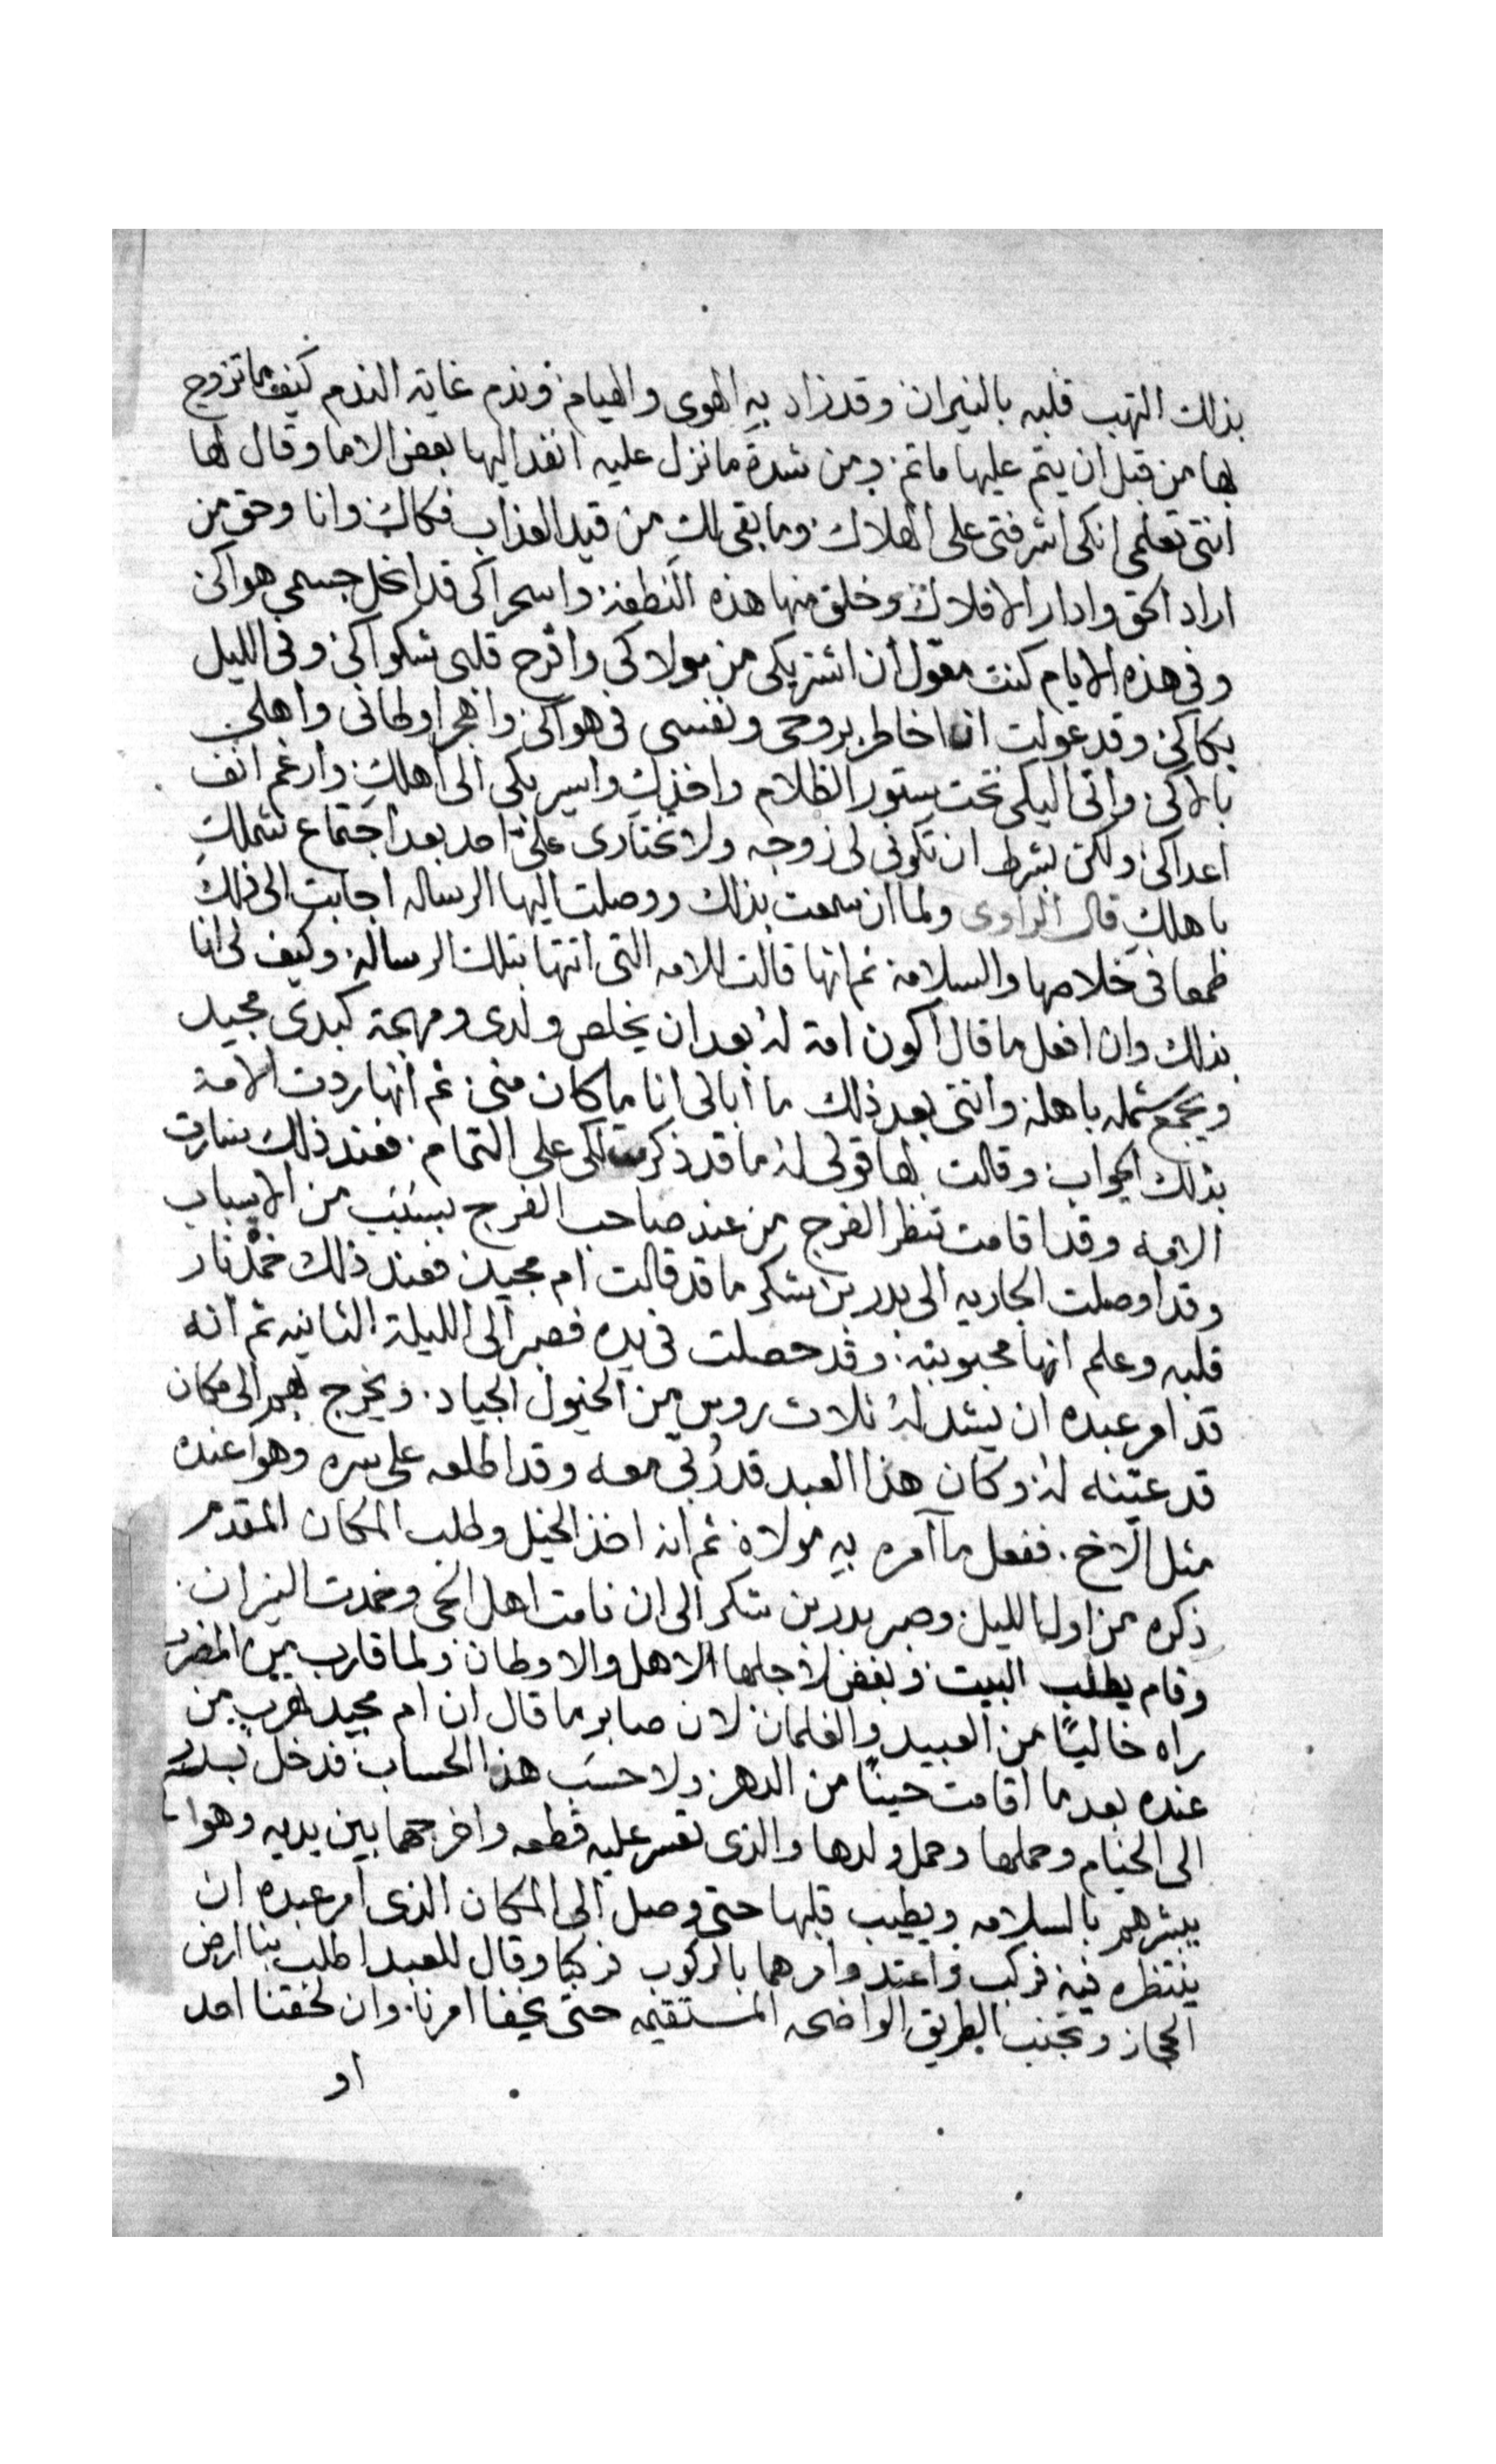 بذلك التهب قلبه بالنيران وقد زاد به الهوى والهيام وندم غاية الندم كيف ما تزوج
بها من قبل ان يتم عليها ماتم ومن شدة ما نزل عليه انفد اليها بعض الاما وقال لها
انتى تعلمى انكى اشرفتى على الهلاك وما بقى لك من قيد العذاب فكاك وانا وحق من
اراد الحق وادار الافلاك وخلق منها هذه النطفة واسحراكى قد انحل جسمى هواكى
وفى هذه الايام كنت معول ان اشتريكى من مولاكى واقرح قلبى شكواكى وفى الليل
بكاكى وقد عولت ان اخاطر بروحى ونفسى فى هواكى واهجر اوطانى واهلى
بالاكى واتى اليكى تحت ستور الظلام واخذك واسير بكى الى اهلك وارغم انف
اعداكى ولكن بشرط ان تكونى لى زوجه ولا تختارى على احد بعد اجتماع شملك
باهلك قال الراوى ولما ان سمعت بذلك ووصلت اليها الرساله اجابت الى ذلك
طمعا فى خلاصها والسلامة ثم انها قالت للامه التى اتتها بتلك الرسالة وكيف لى انا
بذلك وان افعل ما قال اكون امة له بعد ان يخلص ولدى ومهجة كبدى مجيد
ويجمع شمله باهله وانتى بعد ذلك ما ابالى انا ما كان منى ثم انها ردت الامة
بذلك الجواب وقالت لها قولى له ما قد ذكرت لكى على التمام فعند ذلك سارت
الامه وقد اقامت تنظر الفرج من عند صاحب الفرج بسبب من الاسباب
وقد اوصلت الجاريه الى بدر بن شكر ما قد قالت ام مجيد فعند ذلك خمد نار
قلبه وعلم انها محبوبته وقد حصلت فى يده فصبر الى الليلة الثانيه ثم انه
قد امر عبده ان يشد له ثلاث روس من الخيول الجياد ويخرج بهم الى مكان
قد عينه له وكان هذا العبد قد ربى معه وقد اطلعه على سره وهوا عنده
مثل الاخ ففعل ما آمره به مولاه ثم انه اخذ الخيل وطلب المكان المقدم
ذكره من اول الليل وصبر بدر بن شكر الى ان نامت اهل الحى وخمدت النيران
وقام يطلب البيت وبغض لاجلها الاهل والاوطان ولما قارب من المضرب
راه خاليًا من العبيد والغلمان لان صابر ما قال ان ام مجيد تهرب من
عنده بعد ما اقامت حينًا من الدهر ولا حسب هذا الحساب فدخل بدر
الى الخيام وحملها وحمل ولدها والذى تعسر عليه قطعه واخرجهما بين يديه وهوا
يبشرهم بالسلامه ويطيب قلبها حتى وصل الى المكان الذى امر عبده ان
ينتظره فيه فركب واعتد وامرهما بالركوب فركبا وقال للعبد اطلب بنا ارض
الحجاز وتجنب الطريق الواضحه المستقيمه حتى يخفا امرنا وان لحقتنا احد
او